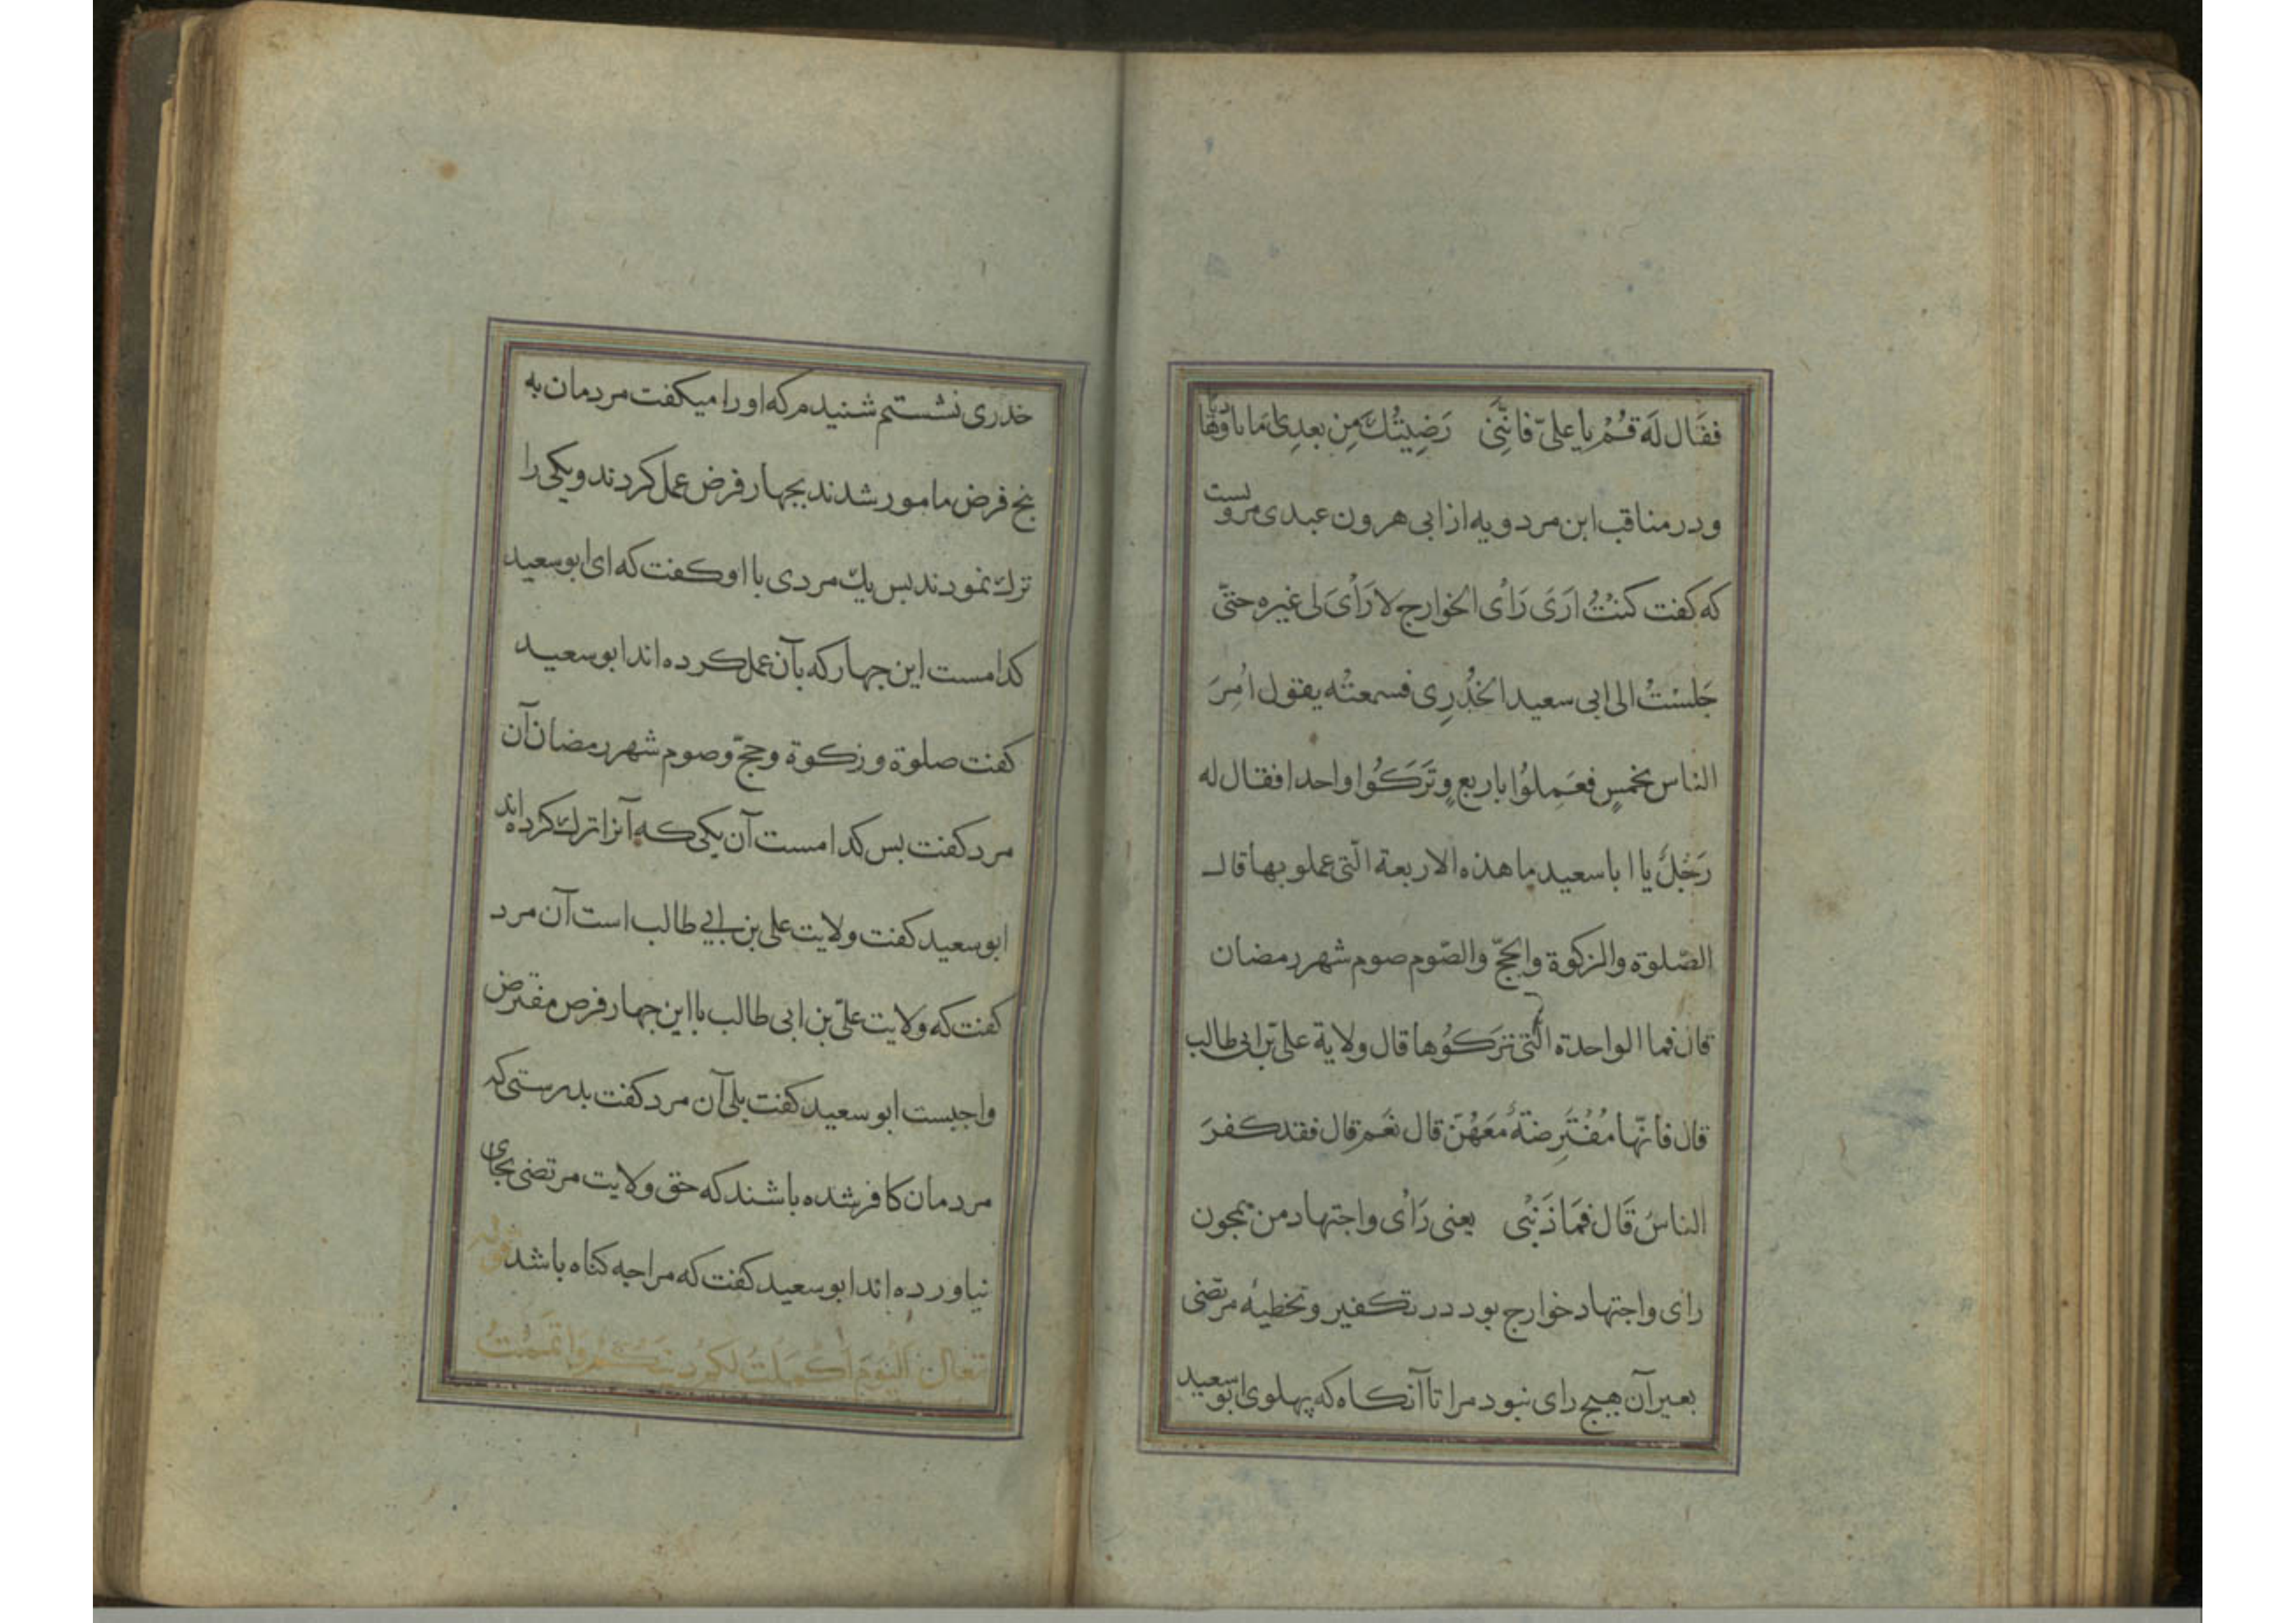 فقال له قُمْ يا علیّ فانّنی رَضِیتُكَ مِن بعدِی اماما وهادیا
ودر مناقب ابن مردویه از ابی هرون عبدی مرویست
که کفت کنتُ ارَیَ رَأیَ الخوارج لا رَأیَ لی غیره حتّی
جَلَسْتُ الی ابی سعید الخُدْرِی فسمعتُه یقول اُمِرَ
الناس بخمسٍ فعَمِلوُا باربعٍ وتَرَكُوا واحدا فقال له
رَجُلٌ یا ابا سعید ما هذه الاربعة الّتی عملو بها قال
الصّلوة والزکوة والحجّ والصّوم صوم شهر رمضان
قال فما الواحدة الّتی ترَكُوها قال ولایة علیّ بن ابی طالب
قال فانّها مُفْتَرِضةٌ مَعَهُنّ قال نَعَم قال فقد کفرَ
الناسُ قَال فمَا ذَنْبی یعنی رَأی واجتهاد من همچون
رای واجتهاد خوارج بود در تکفیر وتخطیه مرتضی
بغیر آن هیچ رای نبود مرا تا آنکاه که پهلوی ابو سعید
خدری نشستم شنیدم که او را میکفت مردمان به
پنج فرض مامور شدند بچهار فرض عمل کردند ویکی را
ترك نمودند بس یك مردی با او کفت که ای ابو سعید
کدامست این جهار که بآن عمل کرده اند ابو سعید
کفت صلوة و زکوة وحجّ وصوم شهر رمضان آن
مرد کفت بس کدامست آن یکی که آنرا ترك کرده اند
ابو سعید کفت ولایت علی بن ابی طالب است آن مرد
کفت که ولایت علیّ بن ابی طالب با این جهار فرض مفترض
واجبست ابو سعید کفت بلی آن مرد کفت بدرستی که
مردمان کافر شده باشند که حق ولایت مرتضی بجای
نیاورده اند ابو سعید کفت که مرا جه کناه باشد قوله
تعالی اَلْیَومَ اَكْمَلْتُ لَكُم دینَكُم وَاتْمَمْتُ